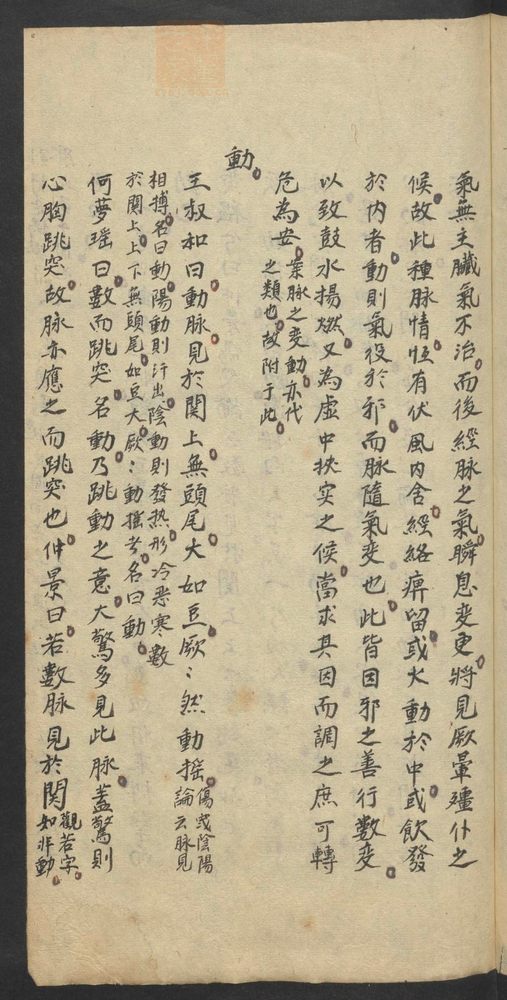 氣無主臟氣不治而後經脉之氣瞬息变更將見厥暈殭仆之
候故此種脉情恆有伏風内舎經絡痹留或火動於中或飲發
於内者動則氣役於邪而脉隨氣变也此皆因邪之善行数变
以致鼓水揚燃又為虛中挾实之候當求其因而調之庶可轉
危為安
案脉之变動亦代
之類也故附于此
動
王叔和曰動脉見於関上無頭尾大如豆厥:然動搖
傷或陰陽
論云脉見
相搏名曰動陽動則汗出陰動則發热形冷恶寒數
於関上上下無頭尾如豆大厥:動搖者名曰動
何夢瑤曰數而跳突名動乃跳動之意大驚多見此脉蓋驚則
心胸跳突故脉亦應之而跳突也仲景曰若數脉見於関
觀若字
如非動